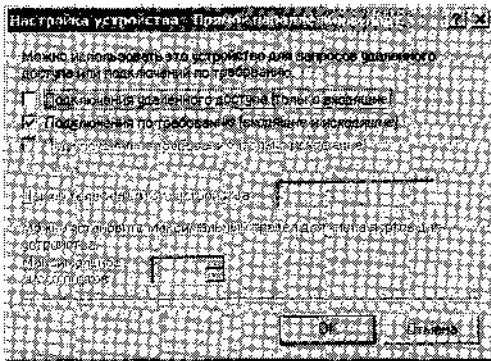 Настройка устройства - Прямой параллельный порт
Можно использовать это устройство для запросов удаленного
доступа или подключений по требованию.
Подключения удаленного доступа (только входящие)
Подключения по требованию (входящие и исходящие)
Можно установить максимальный предел для числа портов для
устройства.
Максимальное
число портов:
OK
Отмена